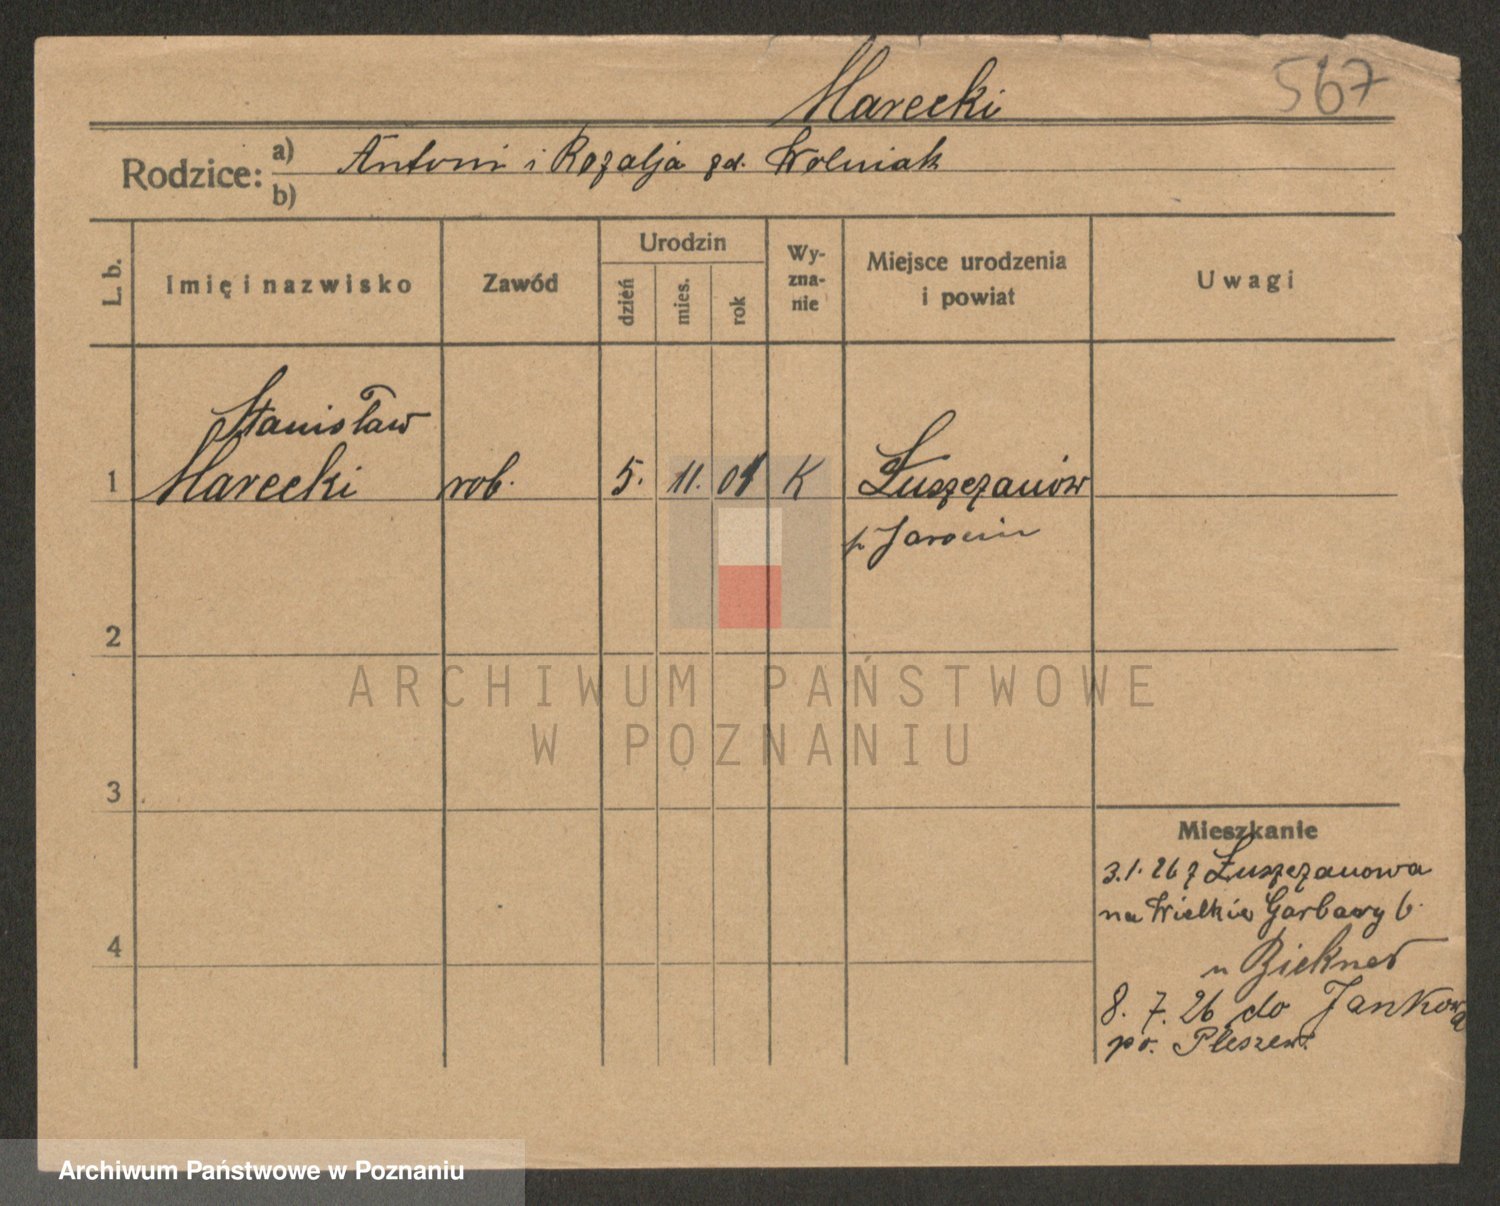 Marecki
567
Rodzice: a) Antoni i Rozalja zd. Wolniak
b)
L. b.
Imię i nazwisko
Zawód
Urodzin
dzień
mies.
rok
Wy-
zna-
nie
Miejsce urodzenia
i powiat
Uwagi
Stanisław
1 Marecki rob. 5. 11. 01 K Łuszczanów
p. Jarocin
2
ARCHIWUM PAŃSTWOWE
W POZNANIU
3
Mieszkanie
3.1.26 z Łuszczanowa
na Wielkie Garbary 6.
4
u
8. 7. 26 do Jankowa
po. Pleszew
Archiwum Państwowe w Poznaniu